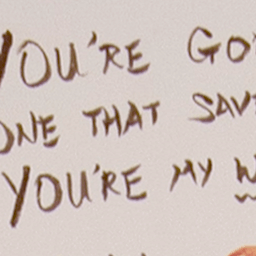 YOU'RE GO
ONE THAT SAV
YOU'RE MY W